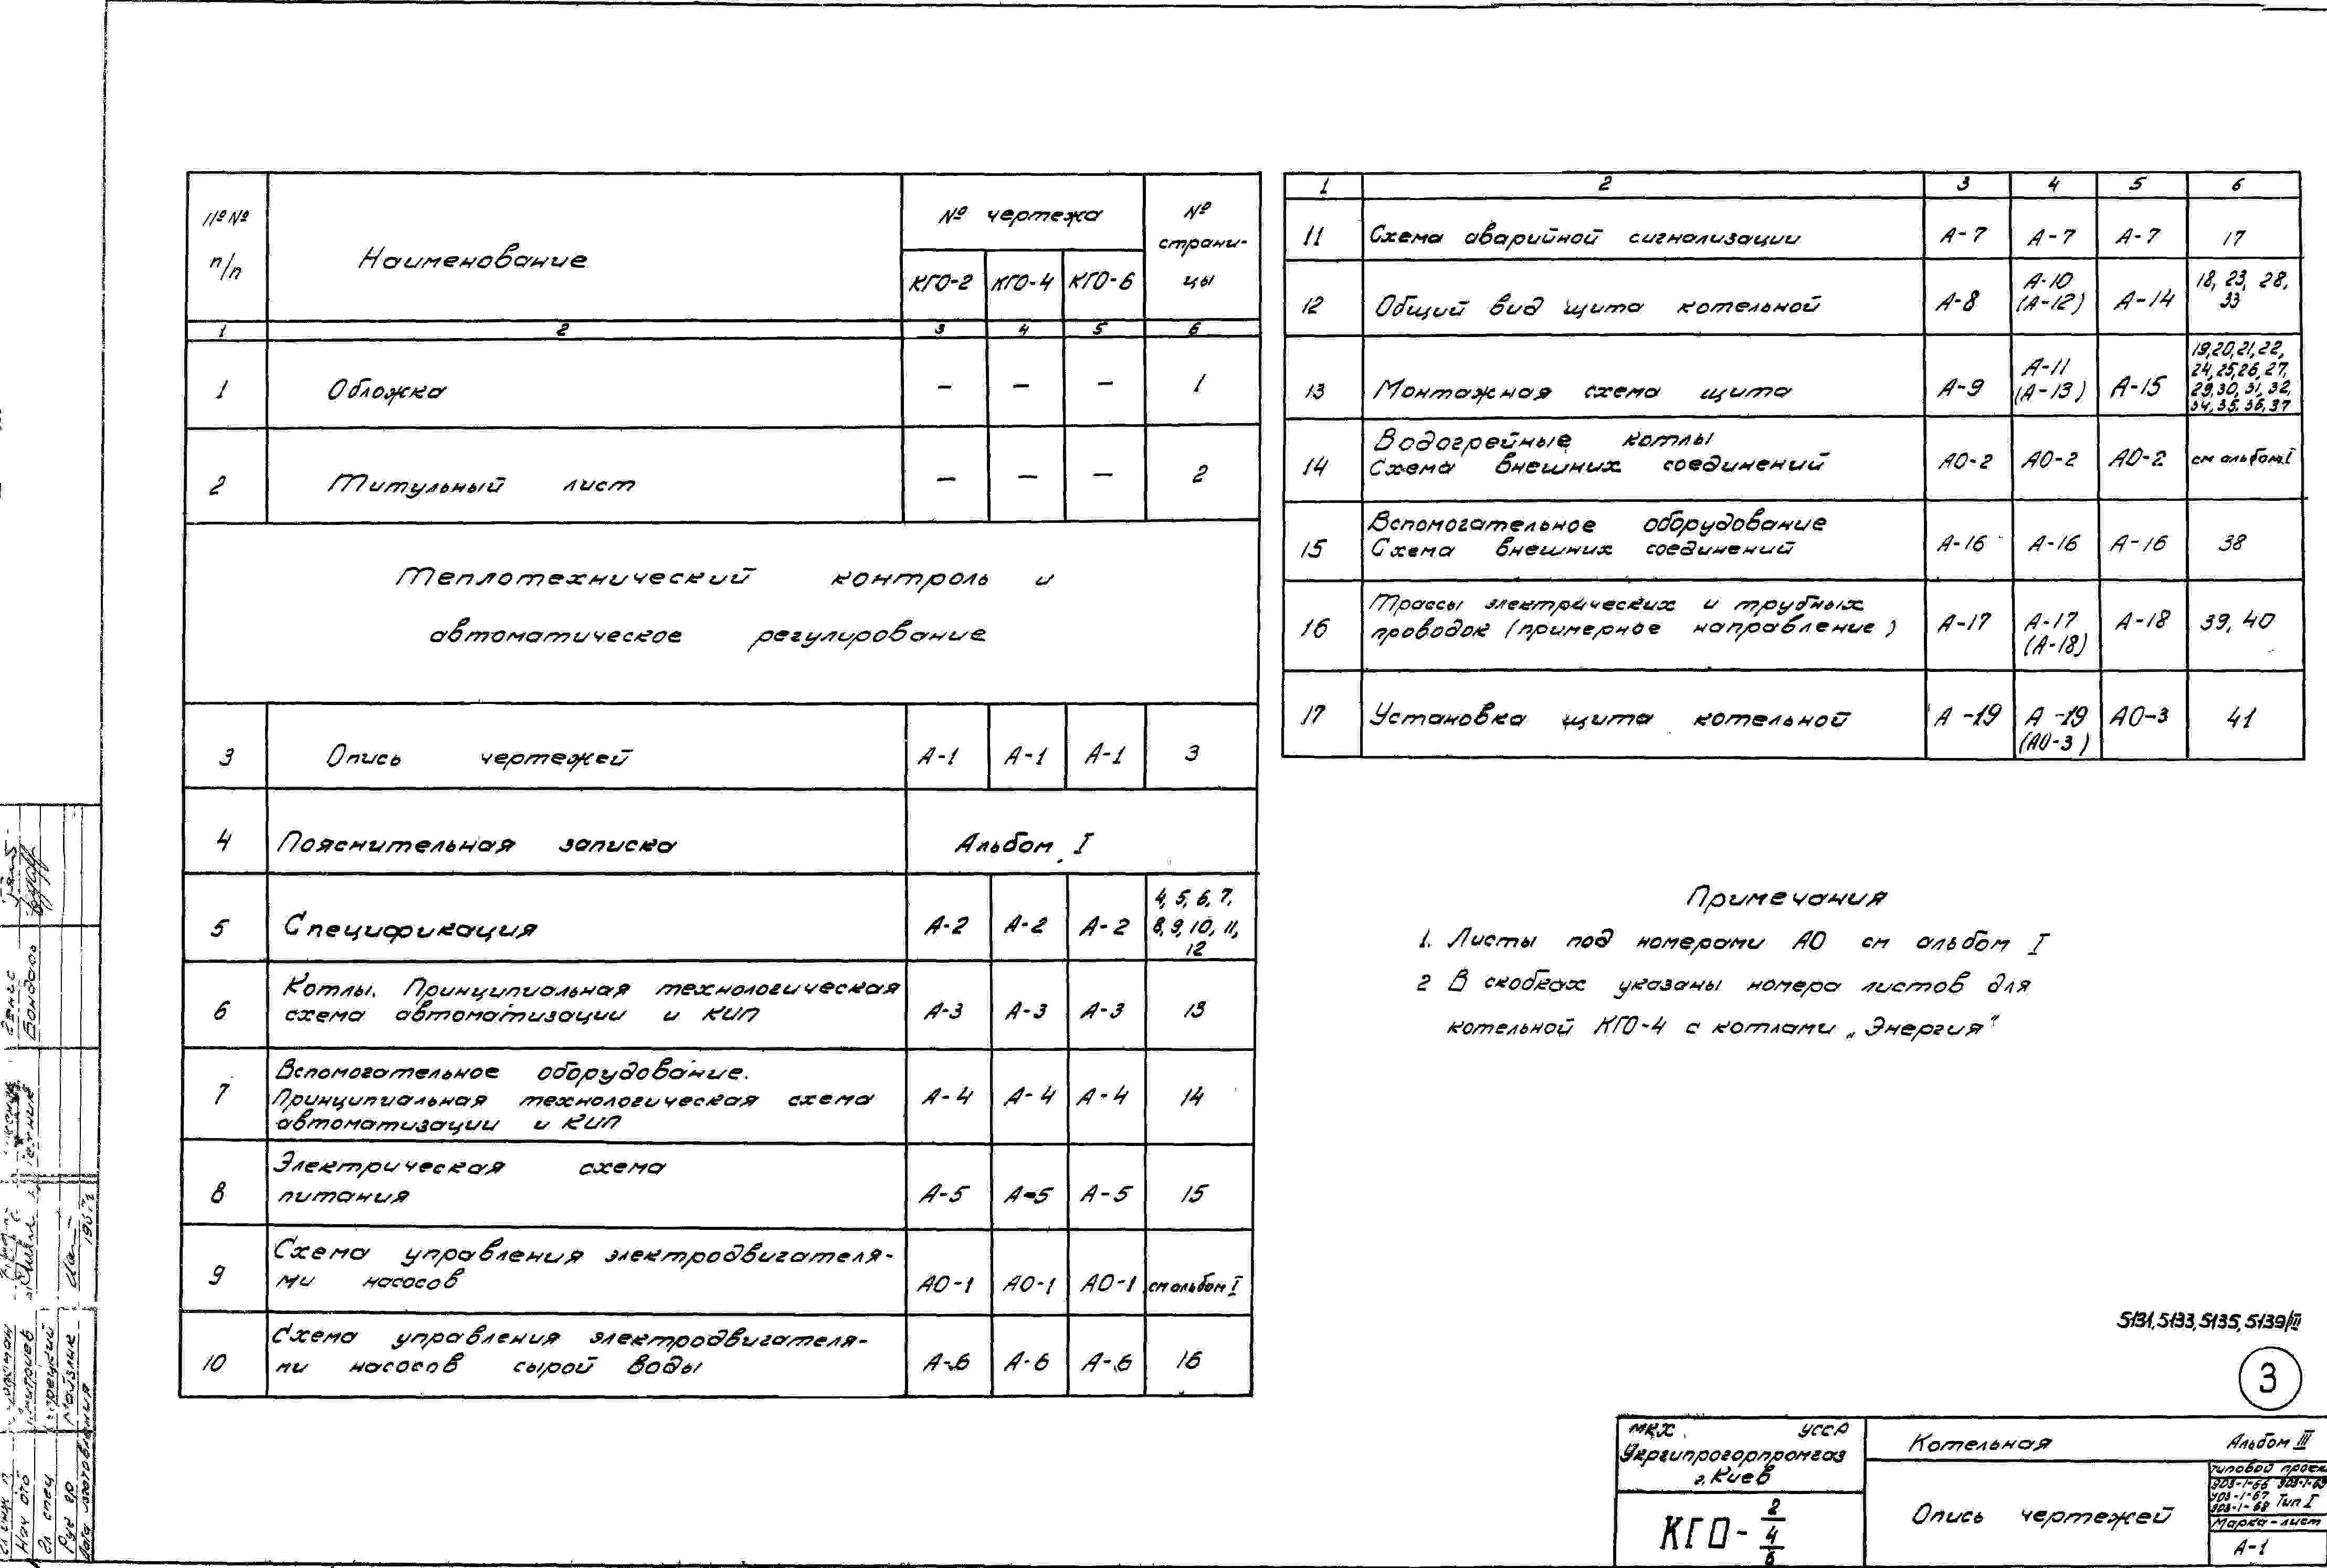 №№ п/п Наименование № чертежа № страни-
цы
КГО-2 КГО-4 КГО-6
1 2 3 4 5 6
1 Обложка — — — 1
2 Титульный лист — — — 2
Теплотехнический контроль и
автоматическое регулирование
3 Опись чертежей А-1 А-1 А-1 3
4 Пояснительная записка Альбом I
5 Спецификация А-2 А-2 А-2 4, 5, 6, 7,
8, 9, 10, 11,
12
6 Котлы. Принципиальная технологическая
схема автоматизации и КИП А-3 А-3 А-3 13
7 Вспомогательное оборудование.
Принципиальная технологическая схема
автоматизации и КИП А-4 А-4 А-4 14
8 Электрическая схема
питания А-5 А-5 А-5 15
9 Схема управления электродвигателя-
ми насосов АО-1 АО-1 АО-1 см альбом I
10 Схема управления электродвигателя-
ми насосов сырой воды А-6 А-6 А-6 16
1 2 3 4 5 6
11 Схема аварийной сигнализации А-7 А-7 А-7 17
12 Общий вид щита котельной А-8 А-10
(А-12) А-14 18, 23, 28,
33
13 Монтажная схема щита А-9 А-11
(А-13) А-15 19,20,21,22,
24,25,26,27,
29,30,31,32,
34,35,36,37
14 Водогрейные котлы
Схема внешних соединений АО-2 АО-2 АО-2 см альбом I
15 Вспомогательное оборудование
Схема внешних соединений А-16 А-16 А-16 38
16 Трассы электрических и трубных
проводок (примерное направление) А-17 А-17
(А-18) А-18 39, 40
17 Установка щита котельной А-19 А-19
(АО-3) АО-3 41
Примечания
1. Листы под номерами АО см альбом I
2 В скобках указаны номера листов для
котельной КГО-4 с котлами „Энергия"
5131,5133,5135,5139/III
3
МКХ УССР
Укргипрогорпромгаз
г. Киев
КГО- 2
4
6
Котельная Альбом III
Опись чертежей
типовой проек
903-1-66 903-1-69
903-1-67
903-1-68 Тип I
Марка-лист
А-1
Нач отд
Гл спец
Рук гр
Дата изготовления
Бондарь